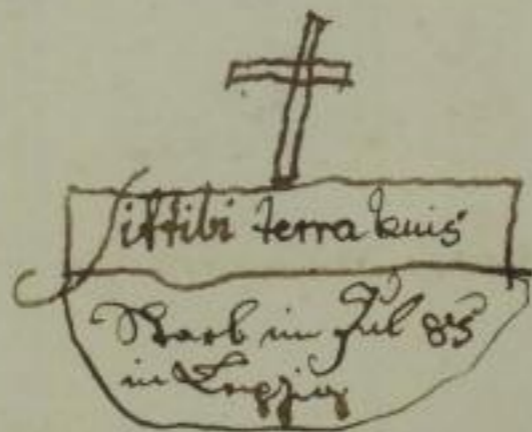 Sit tibi terra levis
Starb im Jul 85
in Leipzig